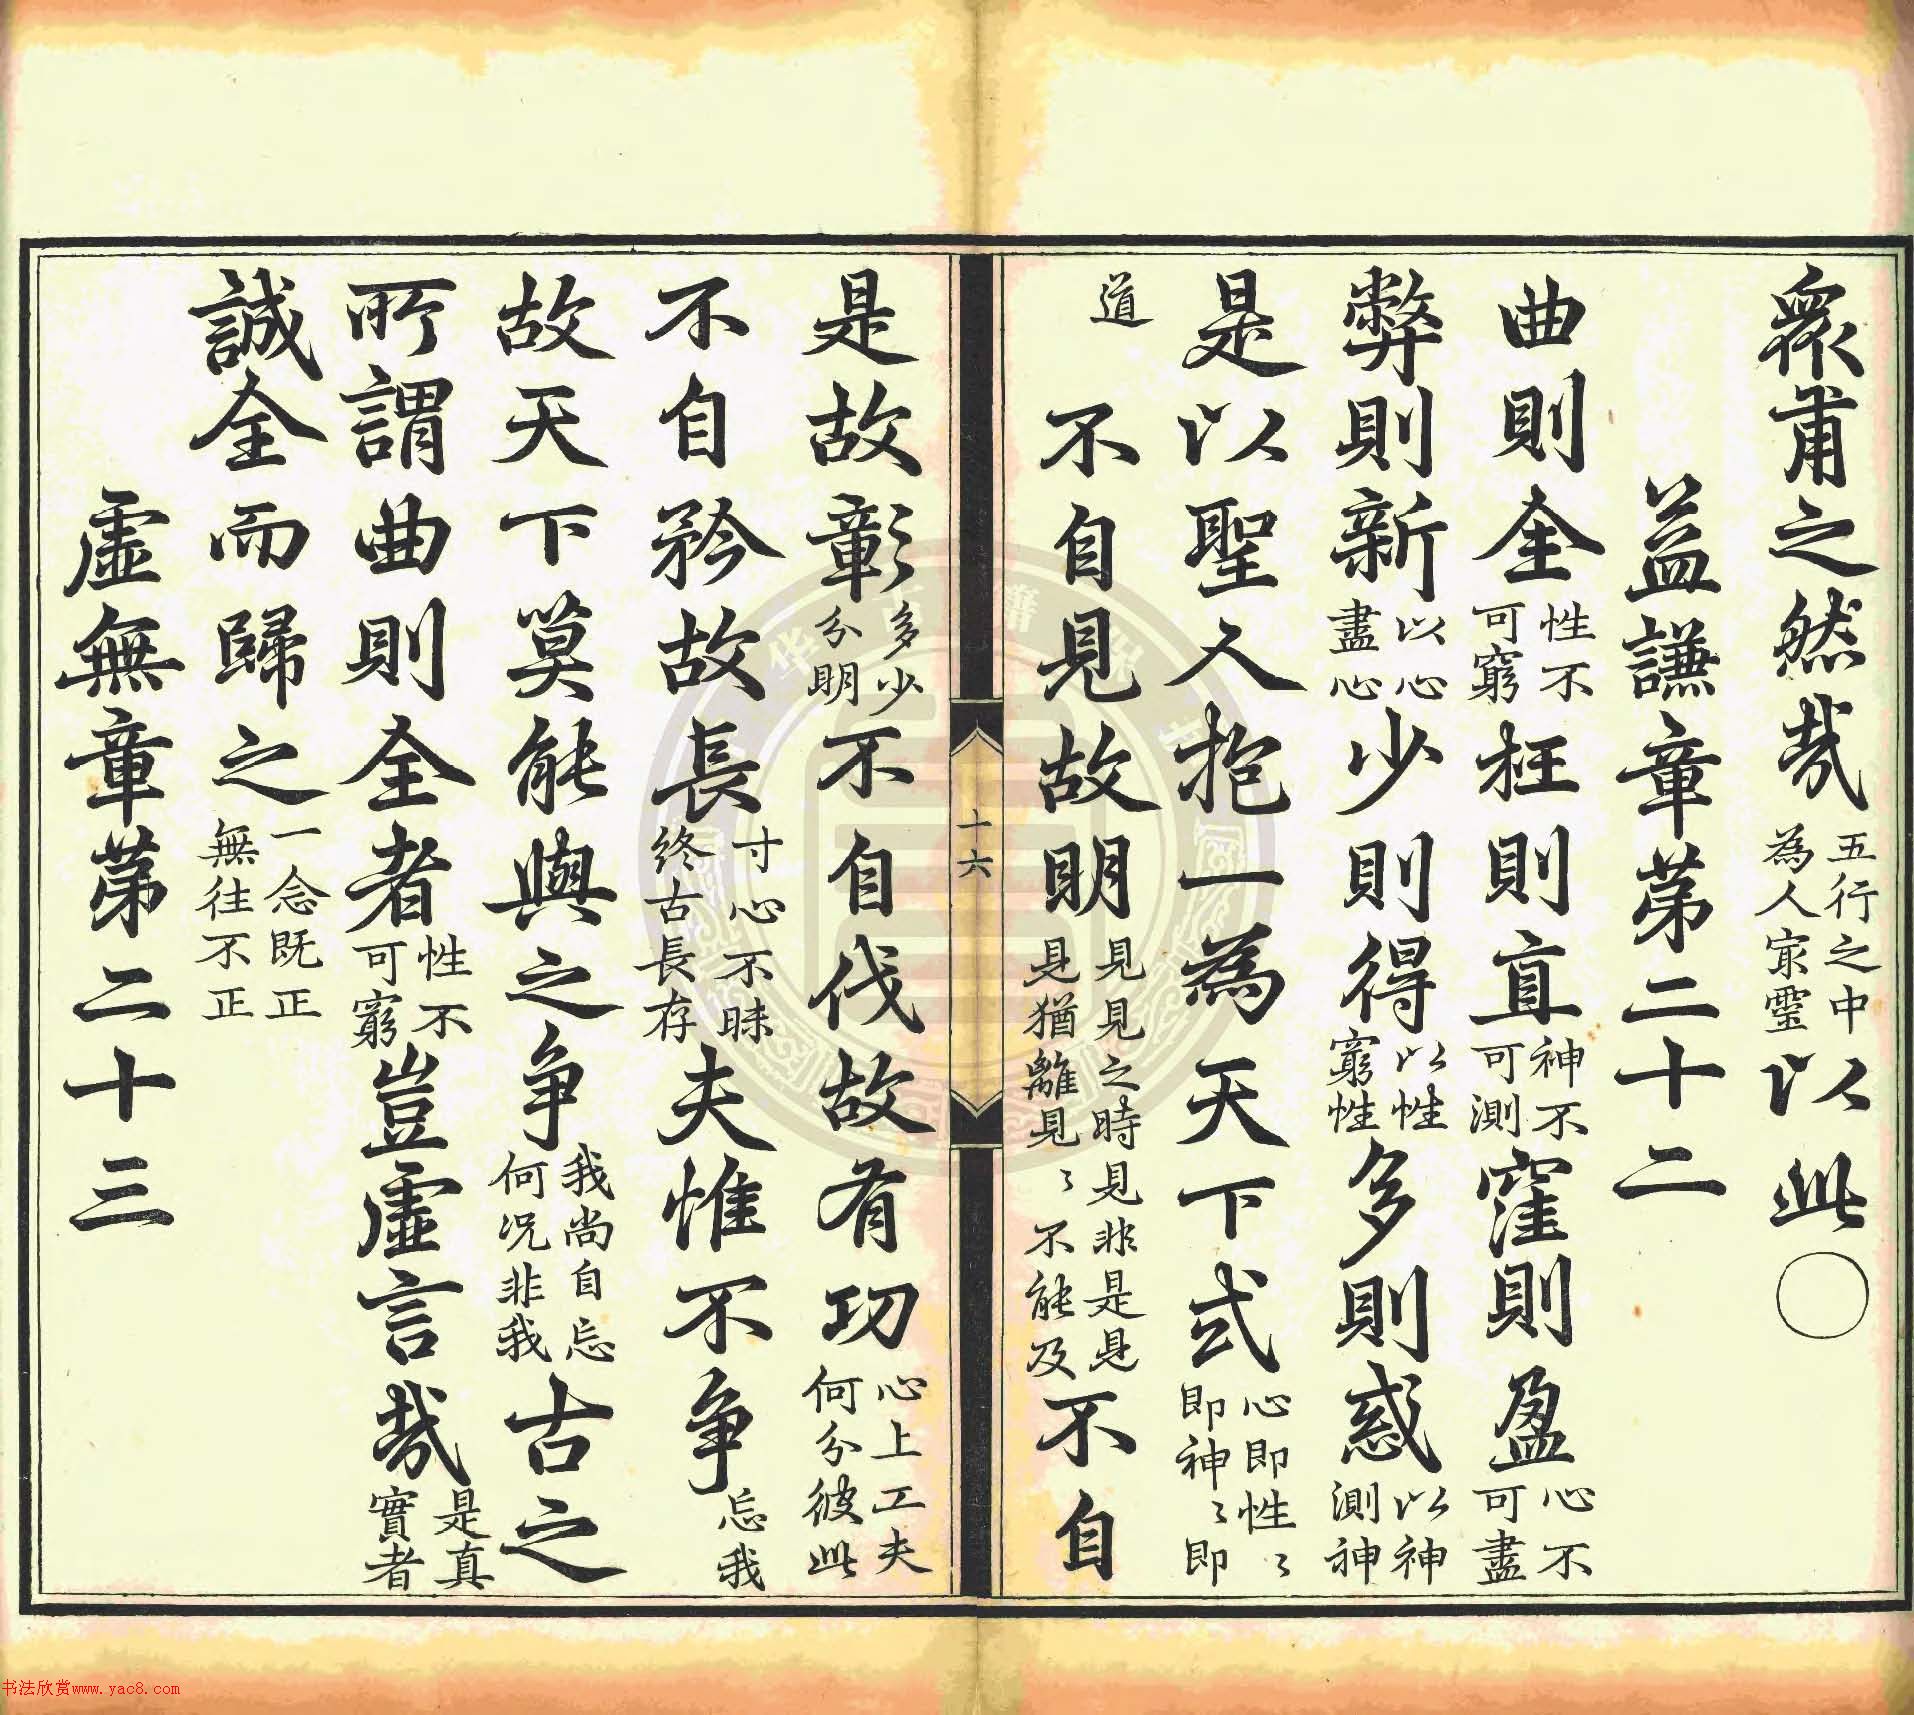 衆甫之然哉五行之中為人㝡靈以此〇
益謙章第二十二
曲則全性不可窮枉則直神不可測窪則盈心不可盡
弊則新以心盡心少則得以性窮性多則惑以神測神
是以聖人抱一為天下式心即性〻即神〻即
道不自見故明見見之時見非是見見猶離見〻不能及不自
十六
是故彰多少分明不自伐故有功心上工夫何分彼此
不自矜故長寸心不昧終古長存夫惟不爭忘我
故天下莫能與之爭我尚自忘何況非我古之
所謂曲則全者性不可窮豈虛言哉是真實者
誠全而歸之一念既正無往不正
虛無章第二十三
书法欣赏www.yac8.com